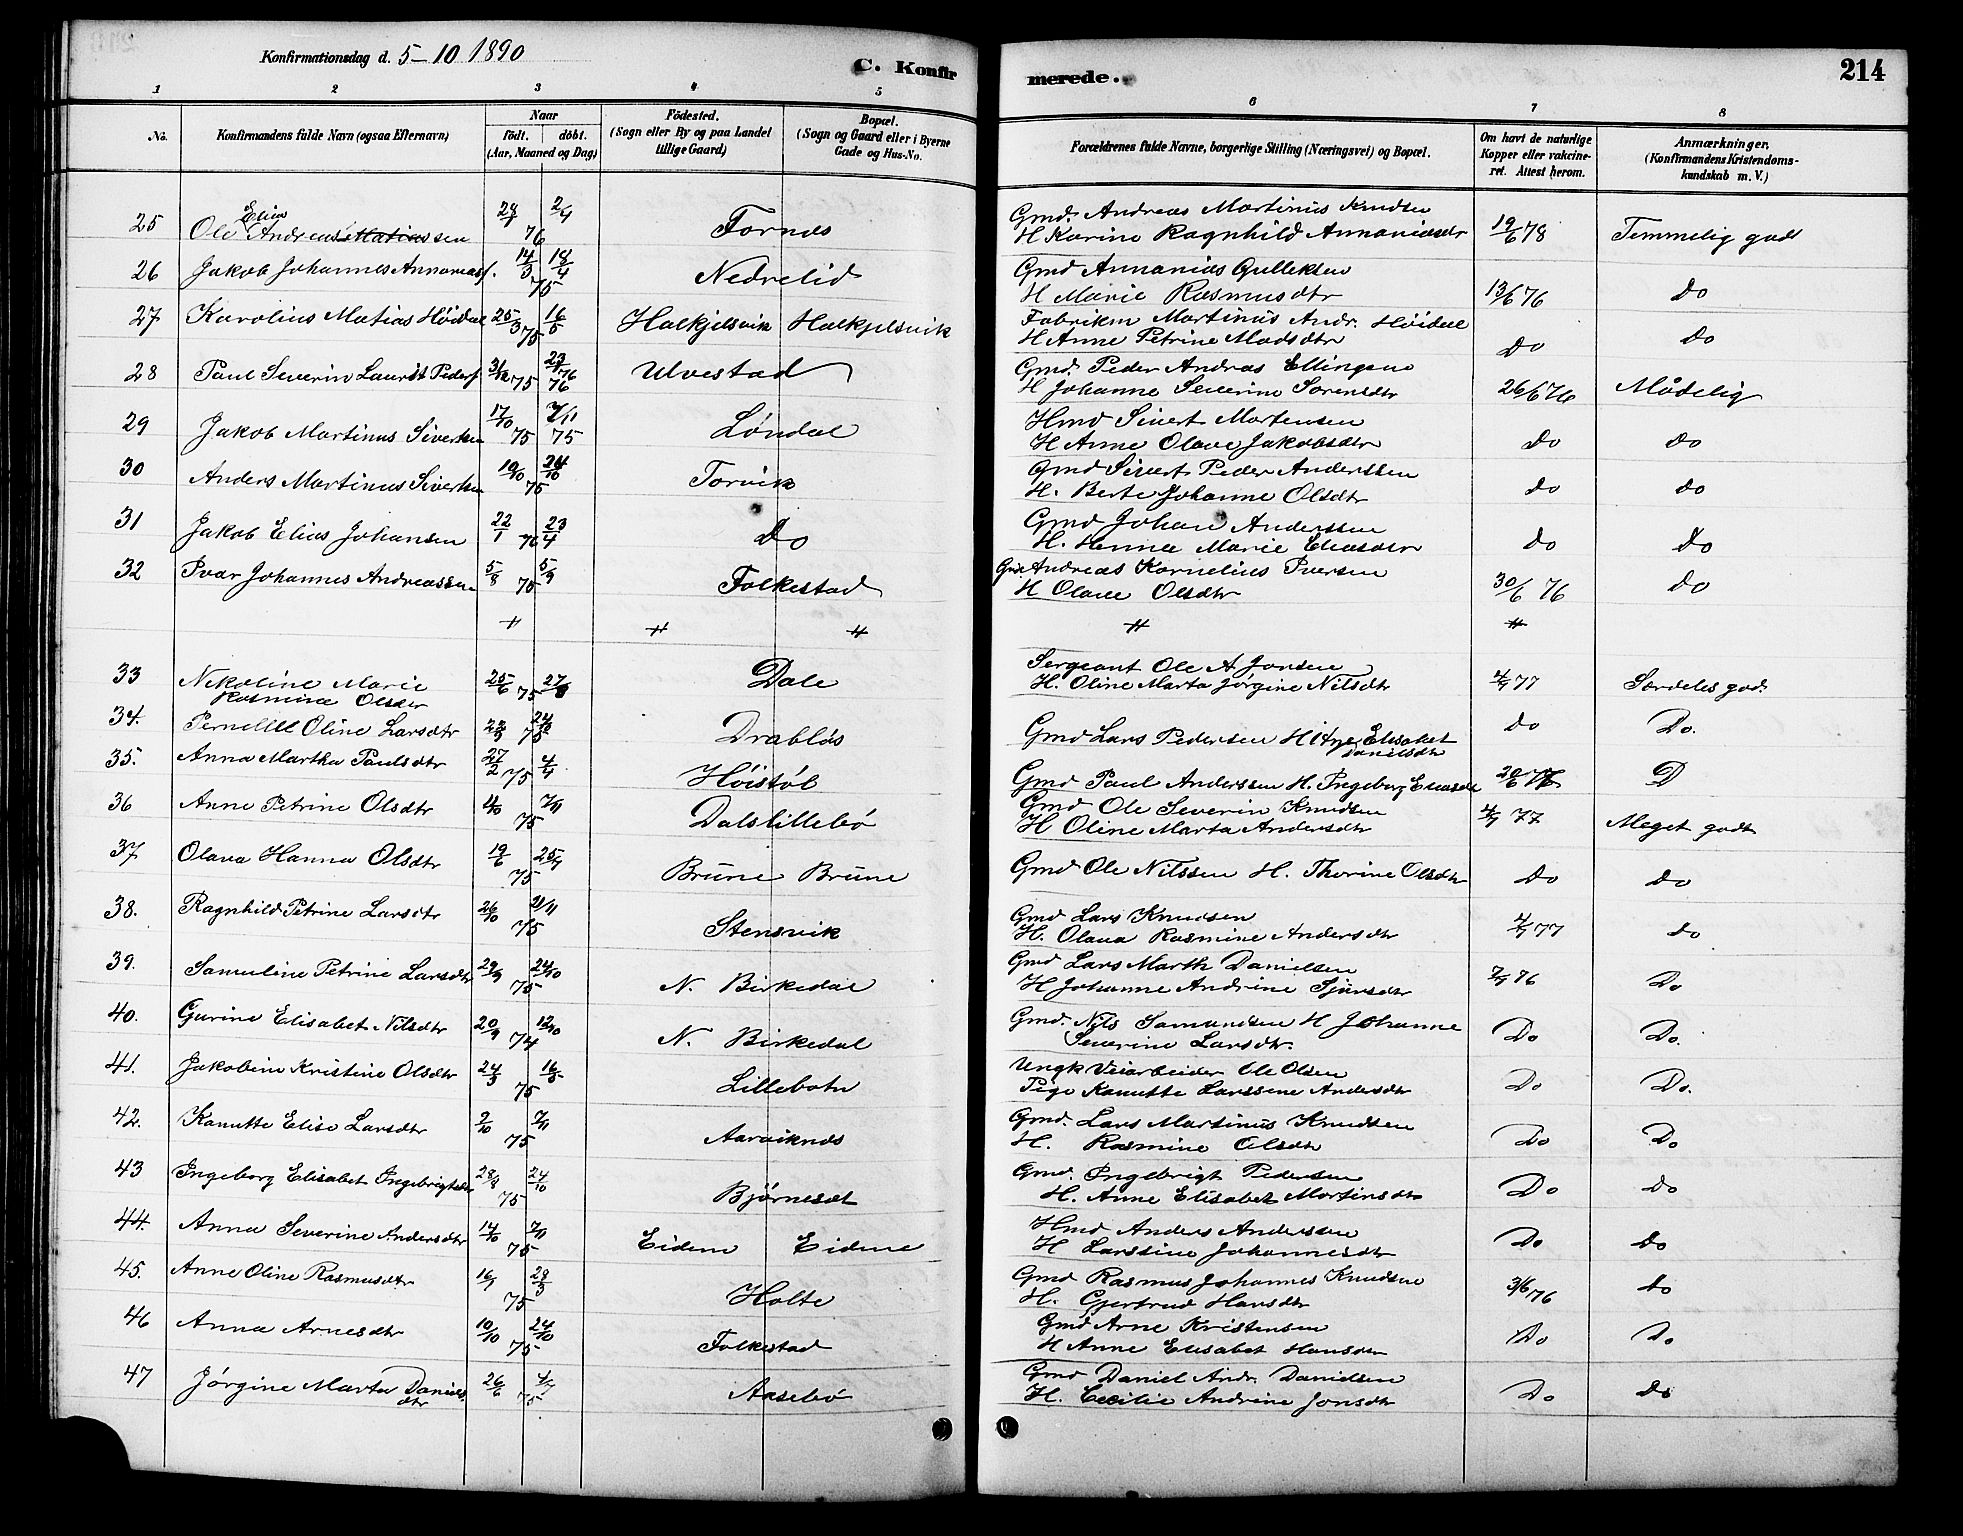 Konfirmationsdag d. 5-10 1890
C. Konfirmerede.
214
1 2 3 4 5 6 7 8
No.
Konfirmandens fulde Navn (ogsaa Efternavn)
Naar
födt. döbt.
(Aar, Maaned og Dag)
Födested.
(Sogn eller By og paa Landet
tillige Gaard)
Bopæl.
(Sogn og Gaard eller i Byerne
Gade og Hus-No.
Forældrenes fulde Navne, borgerlige Stilling (Næringsvei) og Bopæl.
Om havt de naturlige
Kopper eller vakcine-
ret. Attest herom.
Anmærkninger,
(Konfirmandens Kristendoms-
kundskab m. V.)
25 Ole Elias Andreassen 2/4 76 Fornes Gmd. Andreas Martinus Knudsen 19/6 78 Temmelig godt
H Karine Ragnhild Annaniasdtr
26 Jakob Johannes Annaniass. 14/3 18/4 75 Nedrelid Gmd Annanias Gulleksen 13/6 76 do
H Marie Rasmusdtr
27 Karolius Matias Höidal 25/3 16/5 75 Halkjelsvik Halkjelsvik Fabrikm Martinus Andr. Höidal do do
H Anne Petrine Madsdtr
28 Paul Severin Laurit Peders 31/12 75 23/1 76 Ulvestad Gmd. Peder Andreas Ellingsen 26/6 76 Mådelig
H Johanne Severine Sorensdtr
29 Jakob Martinus Sivertsen 17/10 75 7/11 75 Löndal Hmd Sivert Mortensen do do
H Anne Olave Jakobsdtr
30 Anders Martinus Sivertsen 10/10 24/10 75 Torvik Gmd Sivert Peder Anderssen do do
H. Berte Johanne Olsdtr
31 Jakob Elias Johansen 22/1 76 23/4 do Gmd Johan Anderssen do do
H. Hanna Marie Eliasdtr
32 Ivar Johannes Andreassen 5/8 75 5/9 Folkestad Gmd. Andreas Kornelius Iversen 30/6 76 do
H Olave Olsdtr
" " " " "
33 Nikoline Marie 25/6 75 27/8 Dale Sergeant Ole A Jonsen 4/7 77 Særdeles god.
Rasmine Olsdtr H. Oline Marta Jørgine Nilsdtr
34. Pernille Oline Larsdtr 75 Drabløs Gmd Lars Pedersen H Ane Elisabet do Do.
Danielsdtr
35. Anna Martha Paulsdtr 27/2 75 4/4 Höistöl Gmd Paul Anderssen H. Ingeborg Eliasdtr 20/6 77 D
36 Anne Petrine Olsdtr 4/10 7/11 75 Dalslillebö Gmd Ole Severin Knudsen 4/7 77 Meget godt
H Oline Marta Andersdtr
37 Olava Hanna Olsdtr 19/6 25/7 75 Brune Brune Gmd Ole Nilssen H. Thorine Olsdtr do do
38. Ragnhild Petrine Larsdtr 26/10 21/11 75 Stensvik Gmd Lars Knudsen 4/7 77 do
H. Olava Rasmine Andersdtr
39. Samuline Petrine Larsdtr 29/9 24/10 75 N. Birkedal Gmd Lars Marth Danielsen 7/7 76 Do
H Johanne Andrine Sjursdtr
40. Gurine Elisabet Nilsdtr 20/9 74 N. Birkedal Gmd. Nils Samundsen H Johanne Do Do.
Severine Larsdtr.
41. Jakobine Kristine Olsdtr 24/3 16/5 75 Lillebotn Ungk Veiarbeider Ole Olsen Do Do.
Pige Kanutte Larssene Andersdtr
42. Kanutte Elise Larsdtr 2/10 7/11 75 Aarviknes Gmd. Lars Martinus Knudsen Do Do
H. Rasmine Olsdtr
43 Ingeborg Elisabet Ingebrigtsdtr 28/8 24/10 75 Björneset Gmd. Ingebrigt Pedersen Do do
H. Anne Elisabet Martinsdtr
44. Anna Severine Andersdtr 14/10 7/11 75 Eidem Eidene Hmd Anders Anderssen Do do
H Larssine Johannesdtr
45. Anne Oline Rasmusdtr 16/1 28/3 75 Holte Gmd Rasmus Johannes Knudsen 3/6 76 do
H. Gjertrud Hansdtr
46 Anna Arnesdtr 10/10 24/10 75 Folkestad Gmd Arne Kristensen Do Do
H Anne Elisabet Hansdtr
47 Jørgine Marta Daniels 26/6 4/7 75 Aasebø Gmd Daniel Andr. Danielsen Do do
dtr H. Cecilie Andrine Jonsdtr